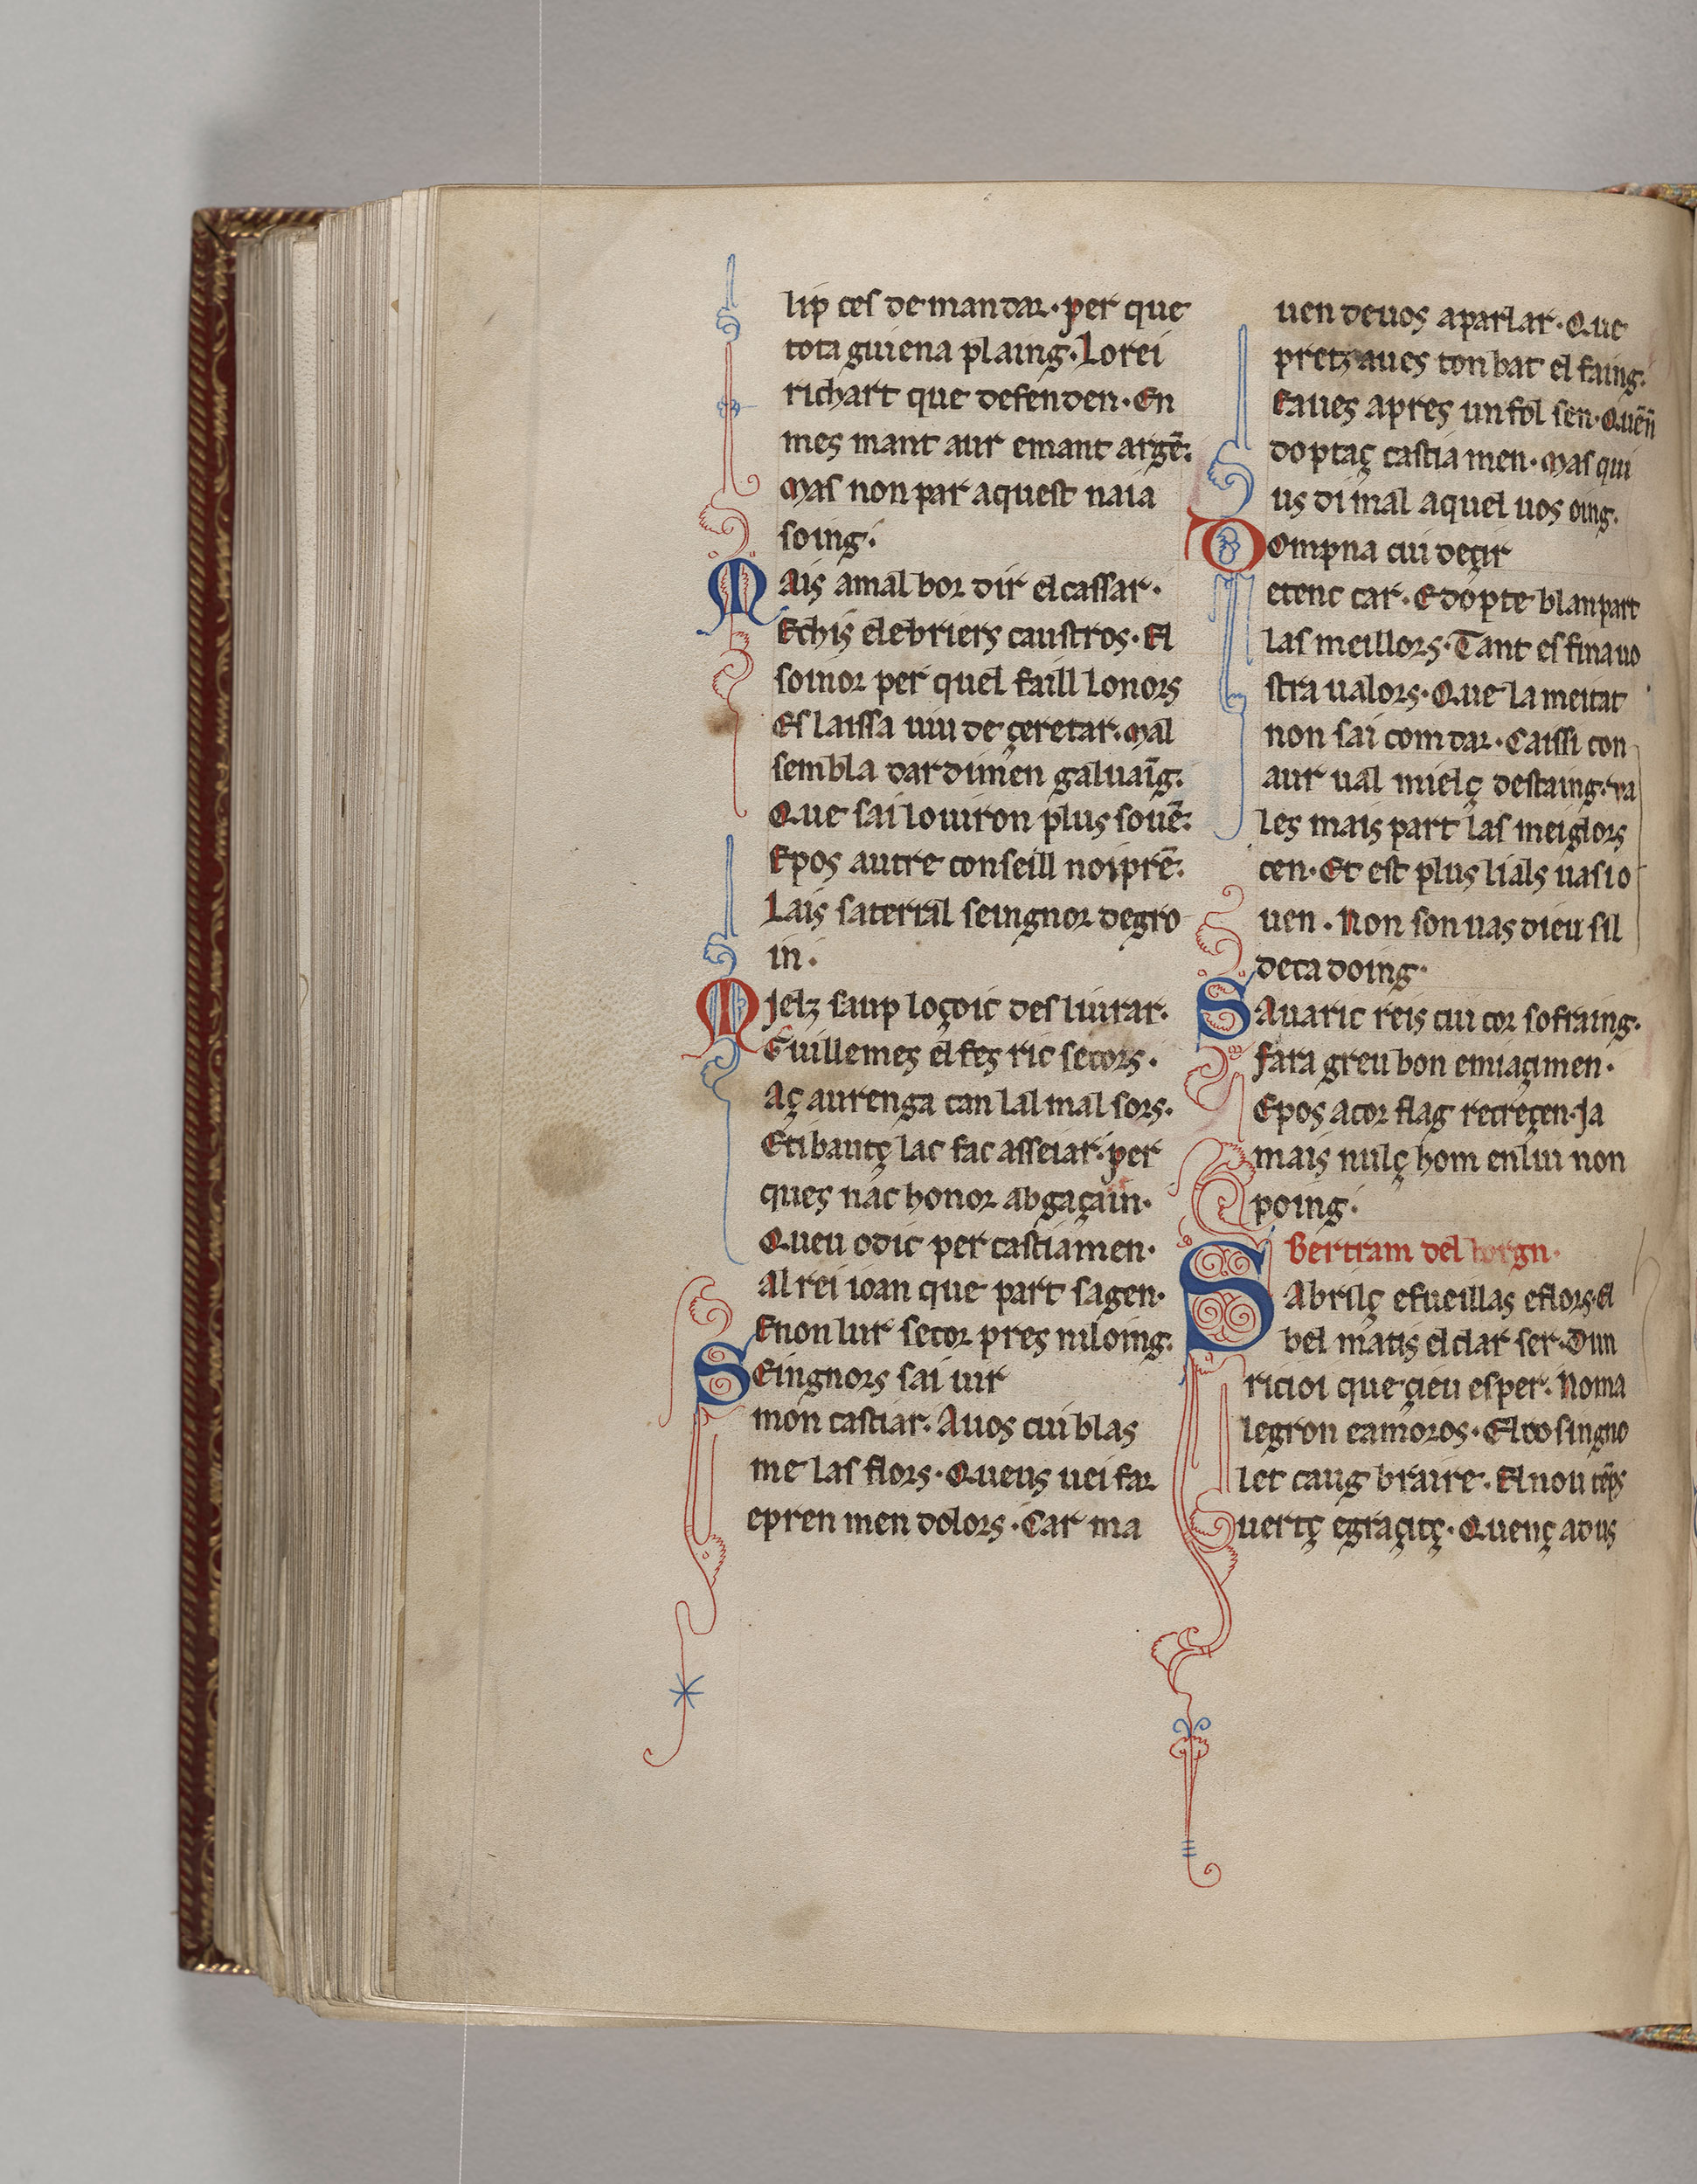 lip ces demandar· per que
tota guiena plaing· Lorei
richart que defenden· En
mes mant aur emant argē·
Mas non par aquest naia
soing·
Mais amal bor dir el cassar·
Echis elebriers eaustros· El
soinor per quel faill lonors
Es laissa uiu deçeretar· Mal
sembla dardimen galuaīg·
Que sai louiron plus souē·
Epos autre conseill noi prē·
Lais sa terral seingnor degro
in·
Mjelz saup loçoic desliurar·
Guillemes el fes ric secors·
Aç aurenga can lal mal sors·
Etibautç lac fac asseiar· per
ques nac honor ab gaçain·
Queu o dic per castiamen·
Al rei ioan que part sa gen·
Enon lur secor pres niloing·
Seingnors sai uir
mon castiar· Auos cui blas
me las flors· Queus uei far
epren men dolors· Car ma
uen deuos aparlar· Que
pretz aues tonbat el faing·
Eaues apres un fol sen· Quēn
doptaç castiamen· Mas qui
us di mal aquel uos oing·
Dompna cui deçir
etenc car· Edopte blan part
las meillors· Tant es fina uo
stra ualors· Que la meitat
non sai comtar· Caissi con
aur ual mielç destaing· va
les mais part las meiglors
cen· Et est plus lials uas io
uen· Non son uas dieu sil
deca doing·
Sauaric reis cui cor sofraing·
Fara greu bon emiaçimen·
Epos a cor flag recreçen· Ja
mais nulç hom en lui non
poing·
Bertram del borgn·
Sabrilç efueillas eflors· El
bel matis el clar ser· Dun
ric ioi que çieu esper· Noma
legron eamoros· El rosingno
let caug braire· El nou tēps
uertç egraçitç· Quenç adus